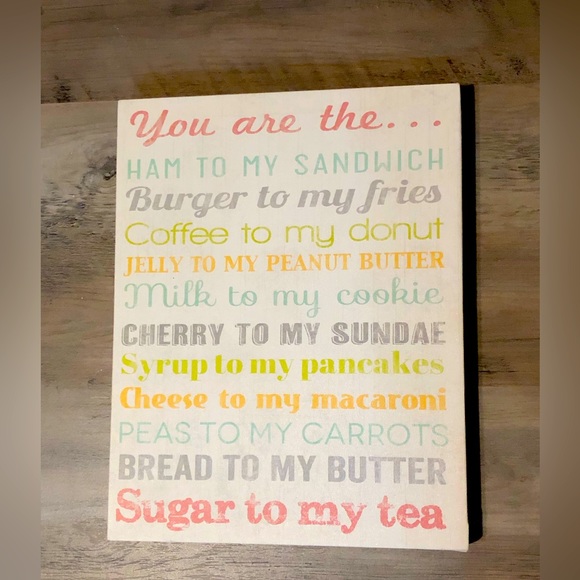 You are the...
HAM TO MY SANDWICH
Burger to my fries
Coffee to my donut
JELLY TO MY PEANUT BUTTER
Milk to my cookie
CHERRY TO MY SUNDAE
Syrup to my pancakes
Cheese to my macaroni
PEAS TO MY CARROTS
BREAD TO MY BUTTER
Sugar to my tea